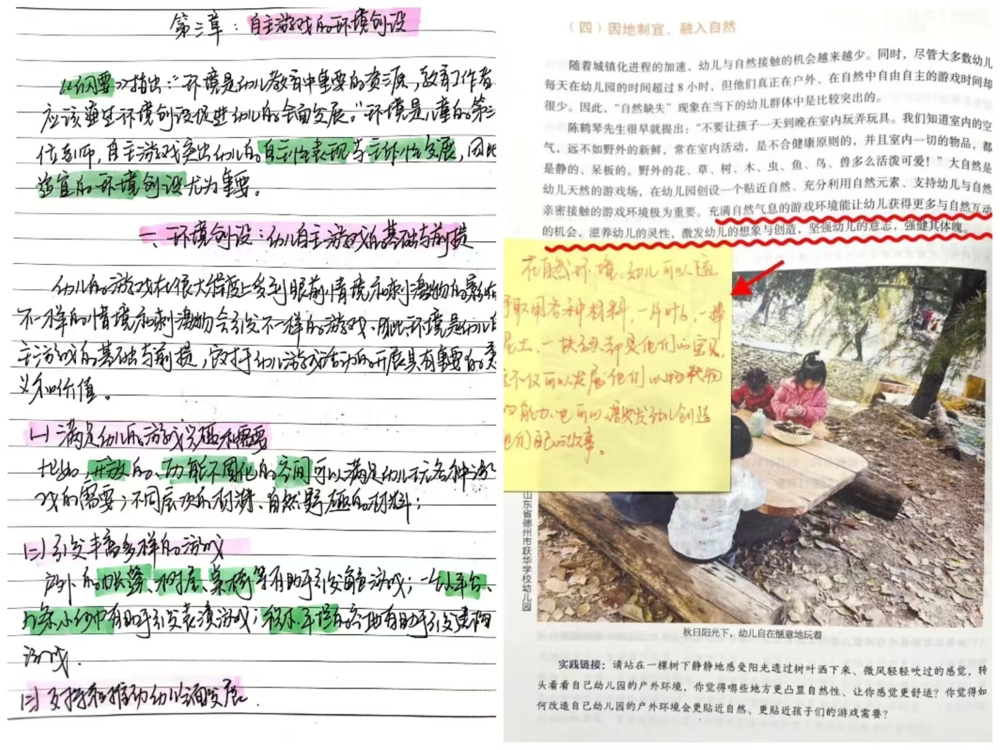 第三章：自主游戏的环境创设
《纲要》指出："环境是幼儿教育中重要的资源，教育工作者
应该通过环境创设促进幼儿的全面发展。"环境是儿童的第三
位老师，自主游戏突出幼儿的自主性表现与主体性发展，因此
适宜的环境创设尤为重要。
一、环境创设：幼儿自主游戏的基础与前提
幼儿的游戏在很大程度上受到眼前情境和刺激物的影响
不一样的情境和刺激物会引发不一样的游戏，因此环境是幼儿自
主游戏的基础与前提，它对于幼儿游戏活动的开展具有重要的意
义和价值。
(一)满足幼儿的游戏兴趣和需要
比如，开放的、功能不固化的空间可以满足幼儿玩各种游
戏的需要；不同层次的材料、自然野趣的材料；
(二)引发丰富多样的游戏
户外的帐篷、树屋、等有助于引发角色游戏；一个小平台、
有助于引发表演游戏；空地有助于引发建构
游戏.
(三)支持和推动幼儿全面发展.
（四）因地制宜、融入自然
随着城镇化进程的加速，幼儿与自然接触的机会越来越少。同时，尽管大多数幼儿
每天在幼儿园的时间超过 8 小时，但他们真正在户外、在自然中自由自主的游戏时间却
很少。因此，"自然缺失"现象在当下的幼儿群体中是比较突出的。
陈鹤琴先生很早就提出："不要让孩子一天到晚在室内玩弄玩具。我们知道室内的空
气，远不如野外的新鲜，常在室内活动，是不合健康原则的，并且室内一切的物品，都
是静的、呆板的。野外的花、草、树、木、虫、鱼、鸟、兽多么活泼可爱！"大自然是
幼儿天然的游戏场，在幼儿园创设一个贴近自然、充分利用自然元素、支持幼儿与自然
亲密接触的游戏环境极为重要。充满自然气息的游戏环境能让幼儿获得更多与自然互动
的机会，滋养幼儿的灵性，激发幼儿的想象与创造，坚强幼儿的意志，强健其体魄。
在自然环境，幼儿可以随
取用各种材料，一片叶子，一捧
泥土，一块石头都是他们的宝贝，
这不仅可以发展他们以物代物
的能力，也可以激发幼儿创造
他们自己的故事。
山东省德州市跃华学校幼儿园
秋日阳光下，幼儿自在惬意地玩着
实践链接：请站在一棵树下静静地感受阳光透过树叶洒下来、微风轻轻吹过的感觉，转
头看看自己幼儿园的户外环境，你觉得哪些地方更凸显自然性、让你感觉更舒适？你觉得如
何改造自己幼儿园的户外环境会更贴近自然、更贴近孩子们的游戏需要？